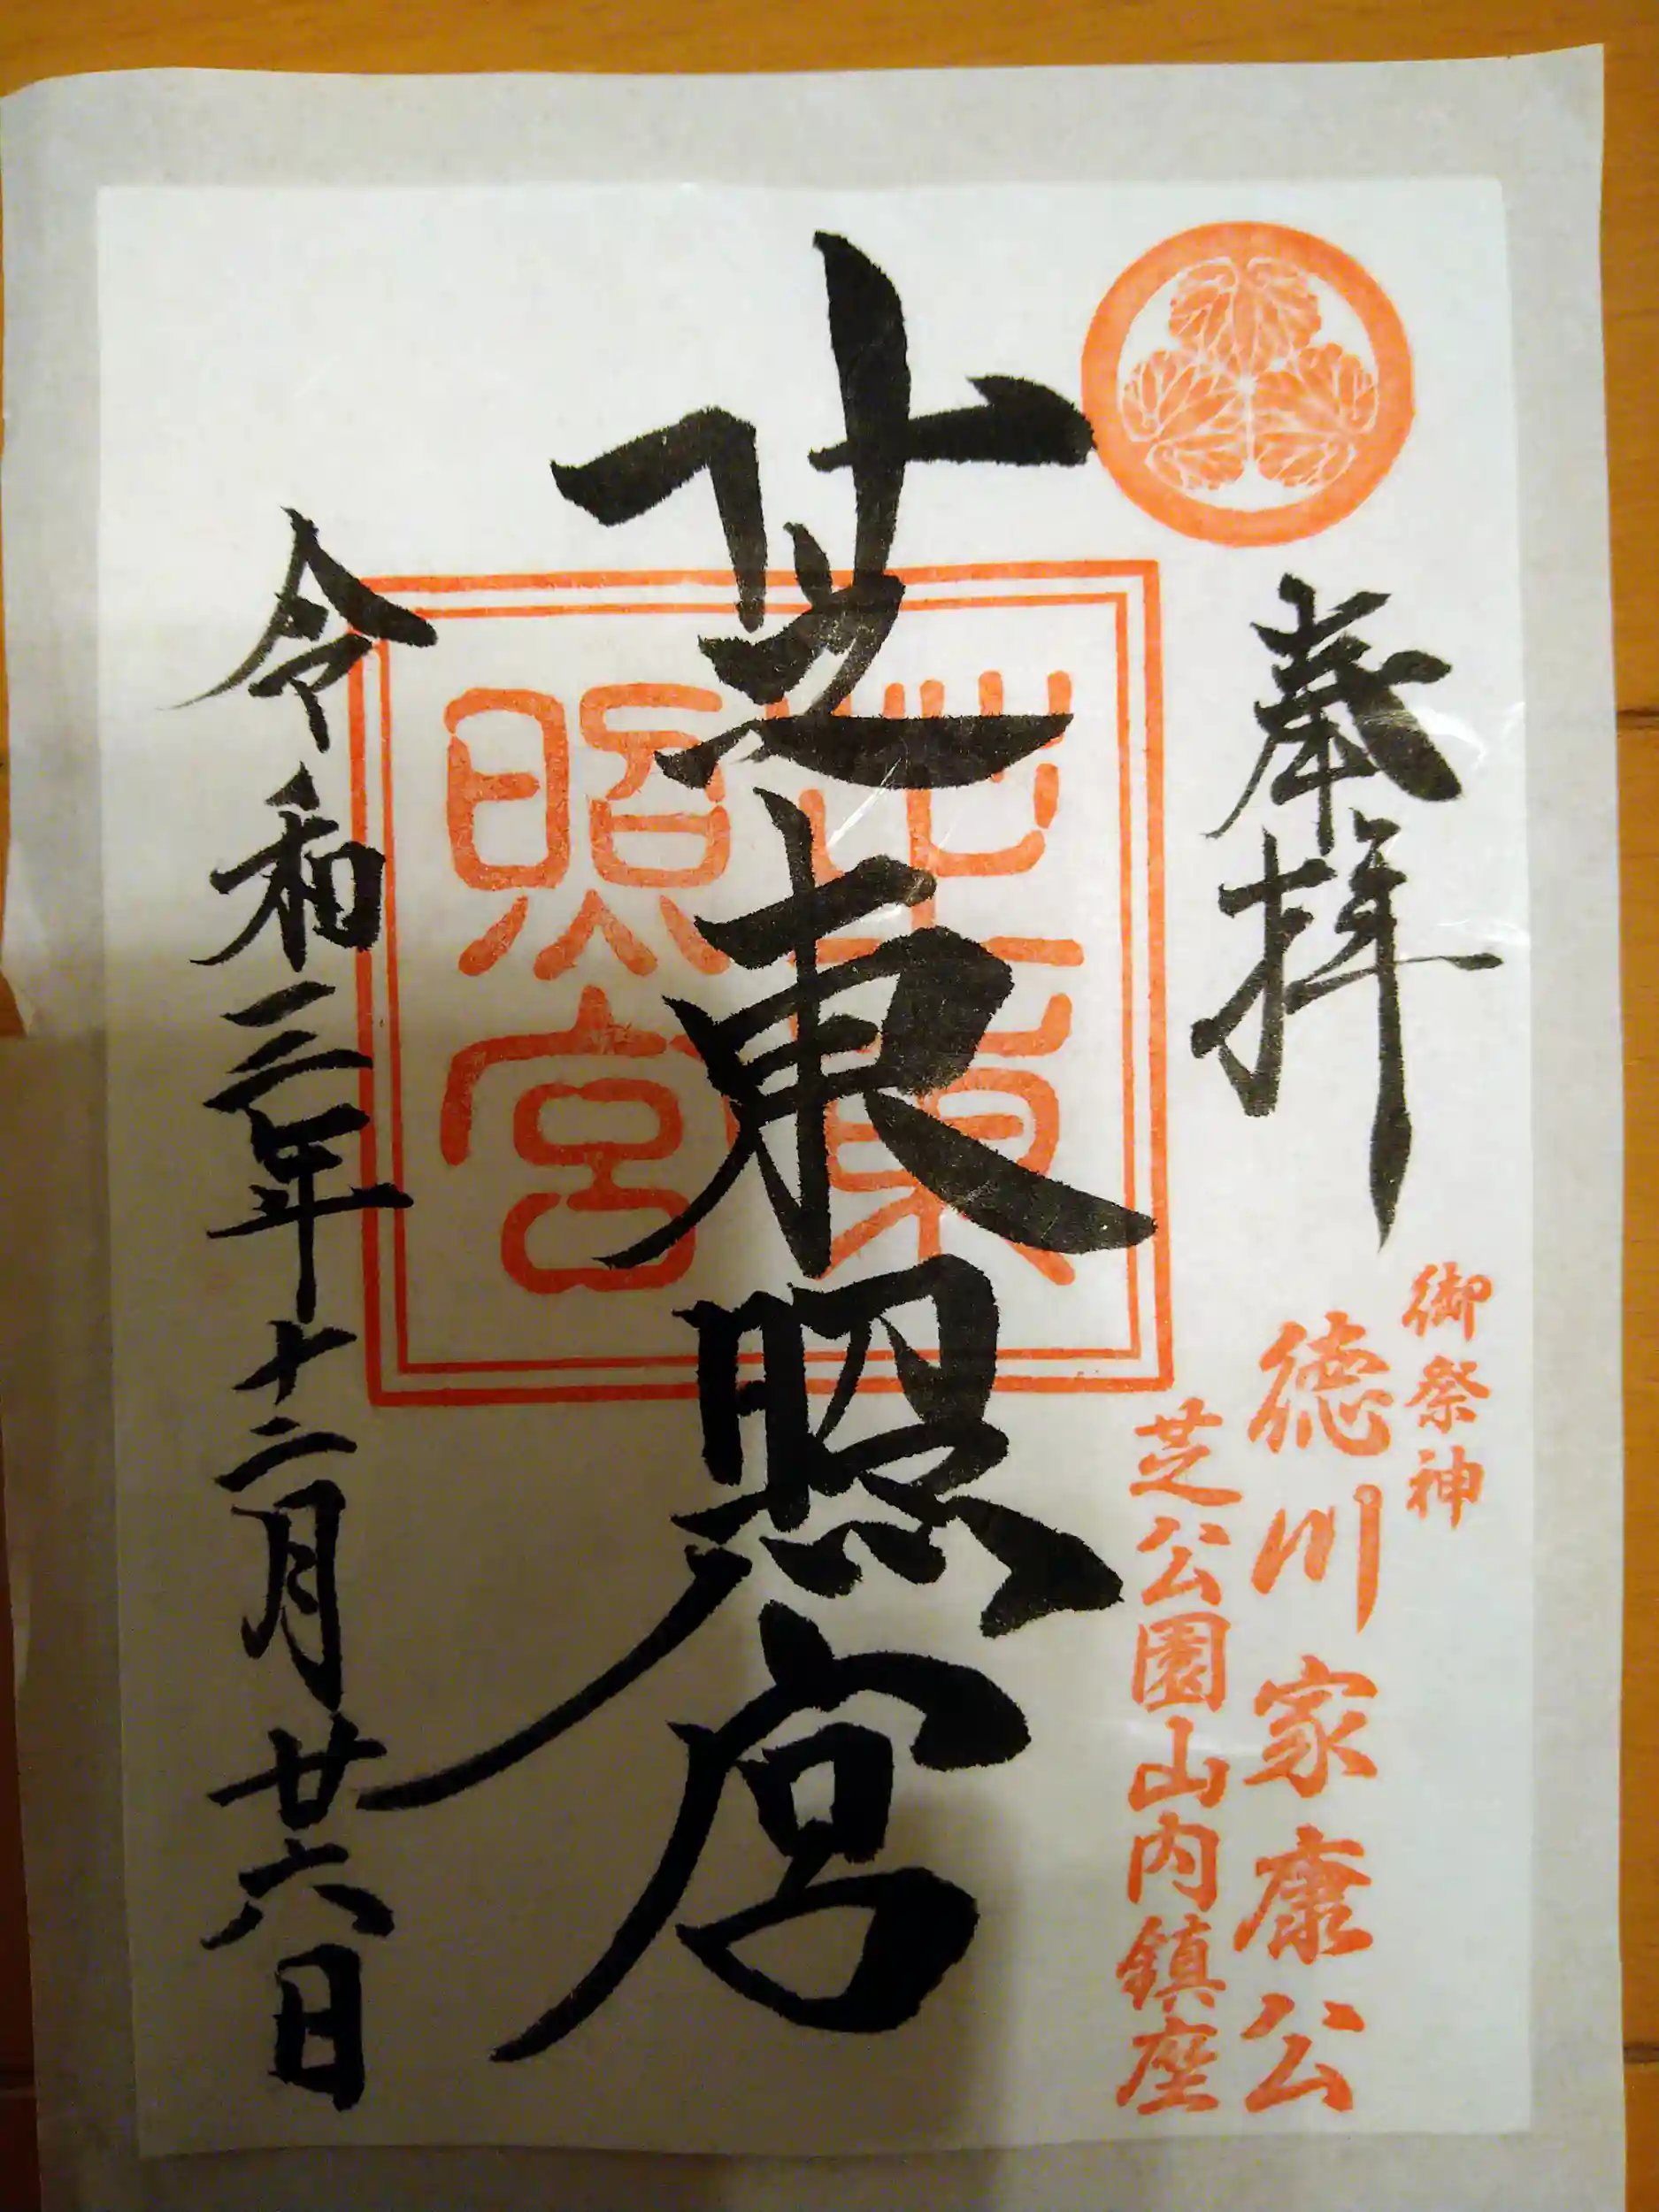 奉拝
御祭神
徳川家康公
芝公園山内鎮座
芝東照宮
芝東
照宮
令和三年十二月廿六日